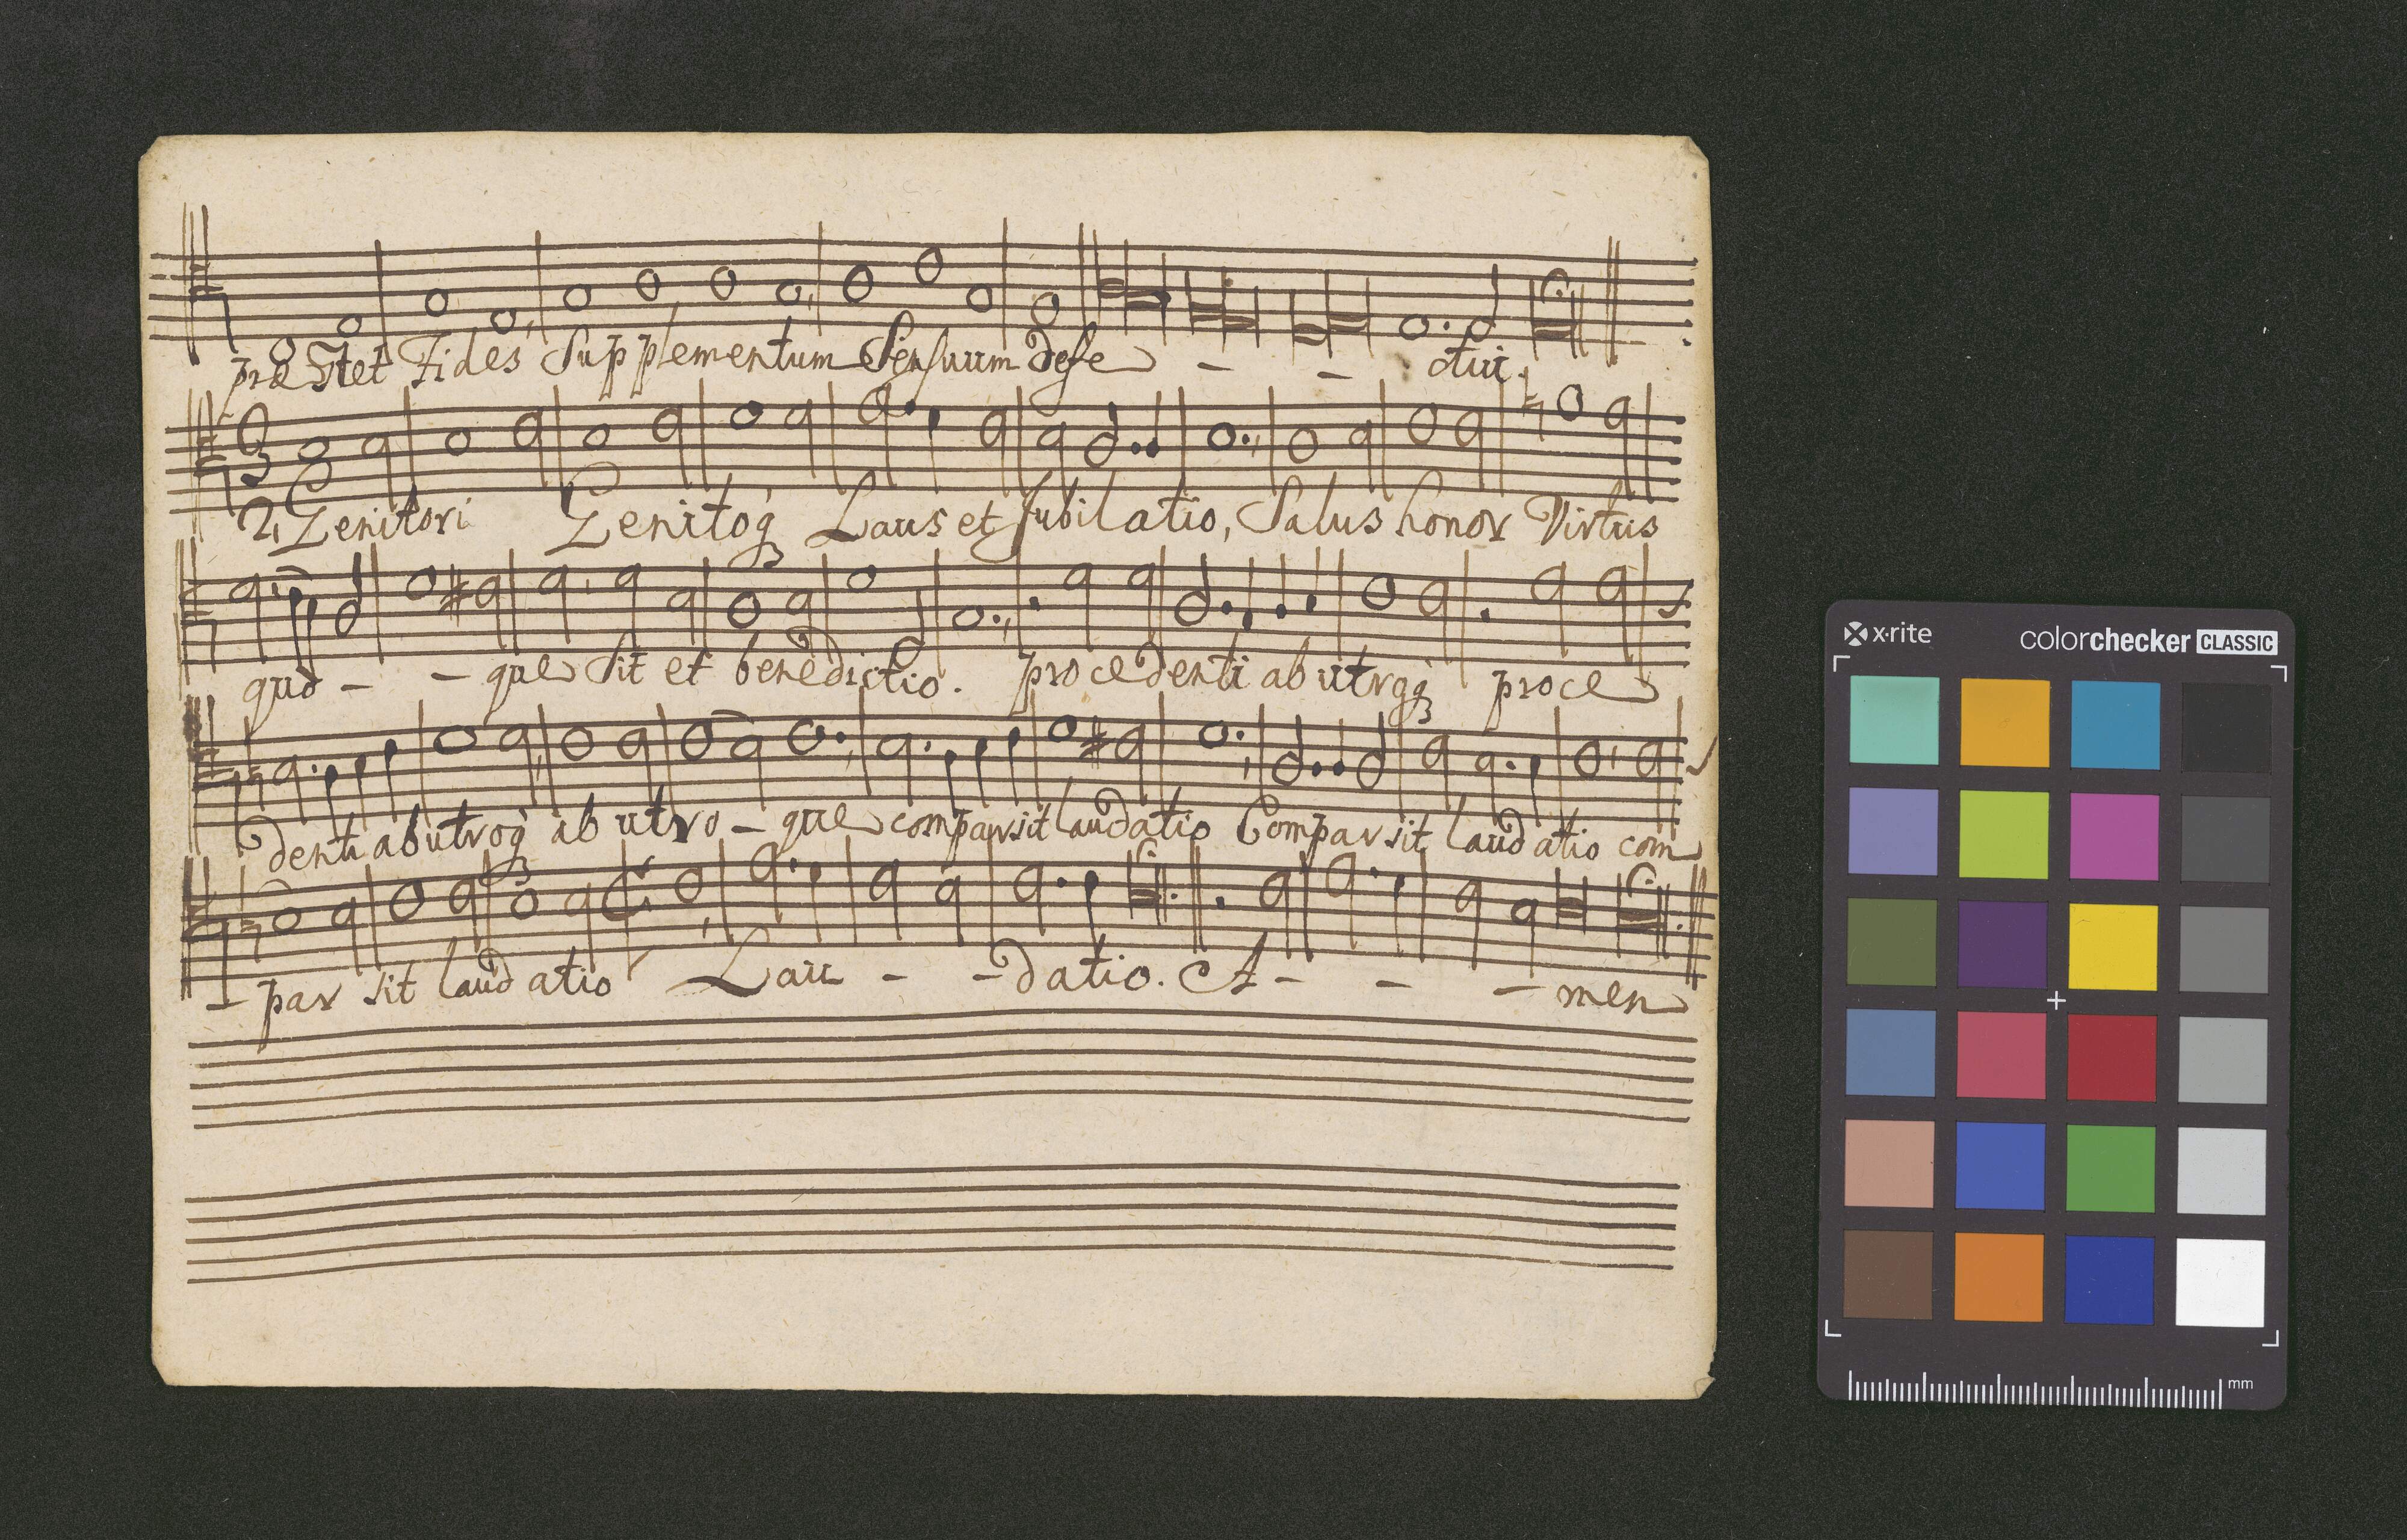 præ Stet Fides Supplementum Sensuum defe - - ctui.
2, Genitori Genitoq Laus et Jubilatio, Salus honor Virtus
quo - - que Sit et benedictio. procedenti ab utroq proce
denti ab utroq ab utro - que compar sit laudatio Compar sit laudatio com
- par sit laudatio Lau - - datio. A - - - men
x·rite colorchecker CLASSIC
mm